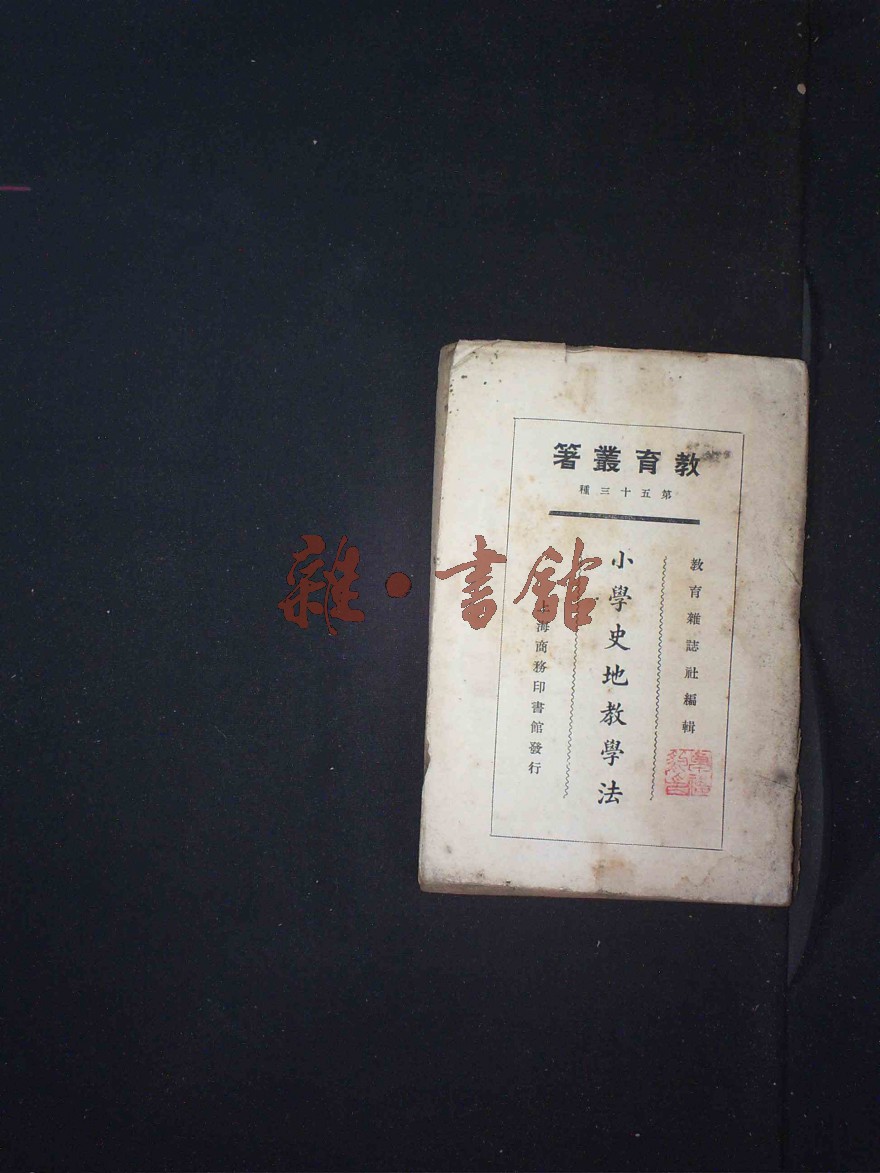 教育叢著
第五十三種
教育雜誌社編輯
小學史地教學法
上海商務印書館發行
雜·書館